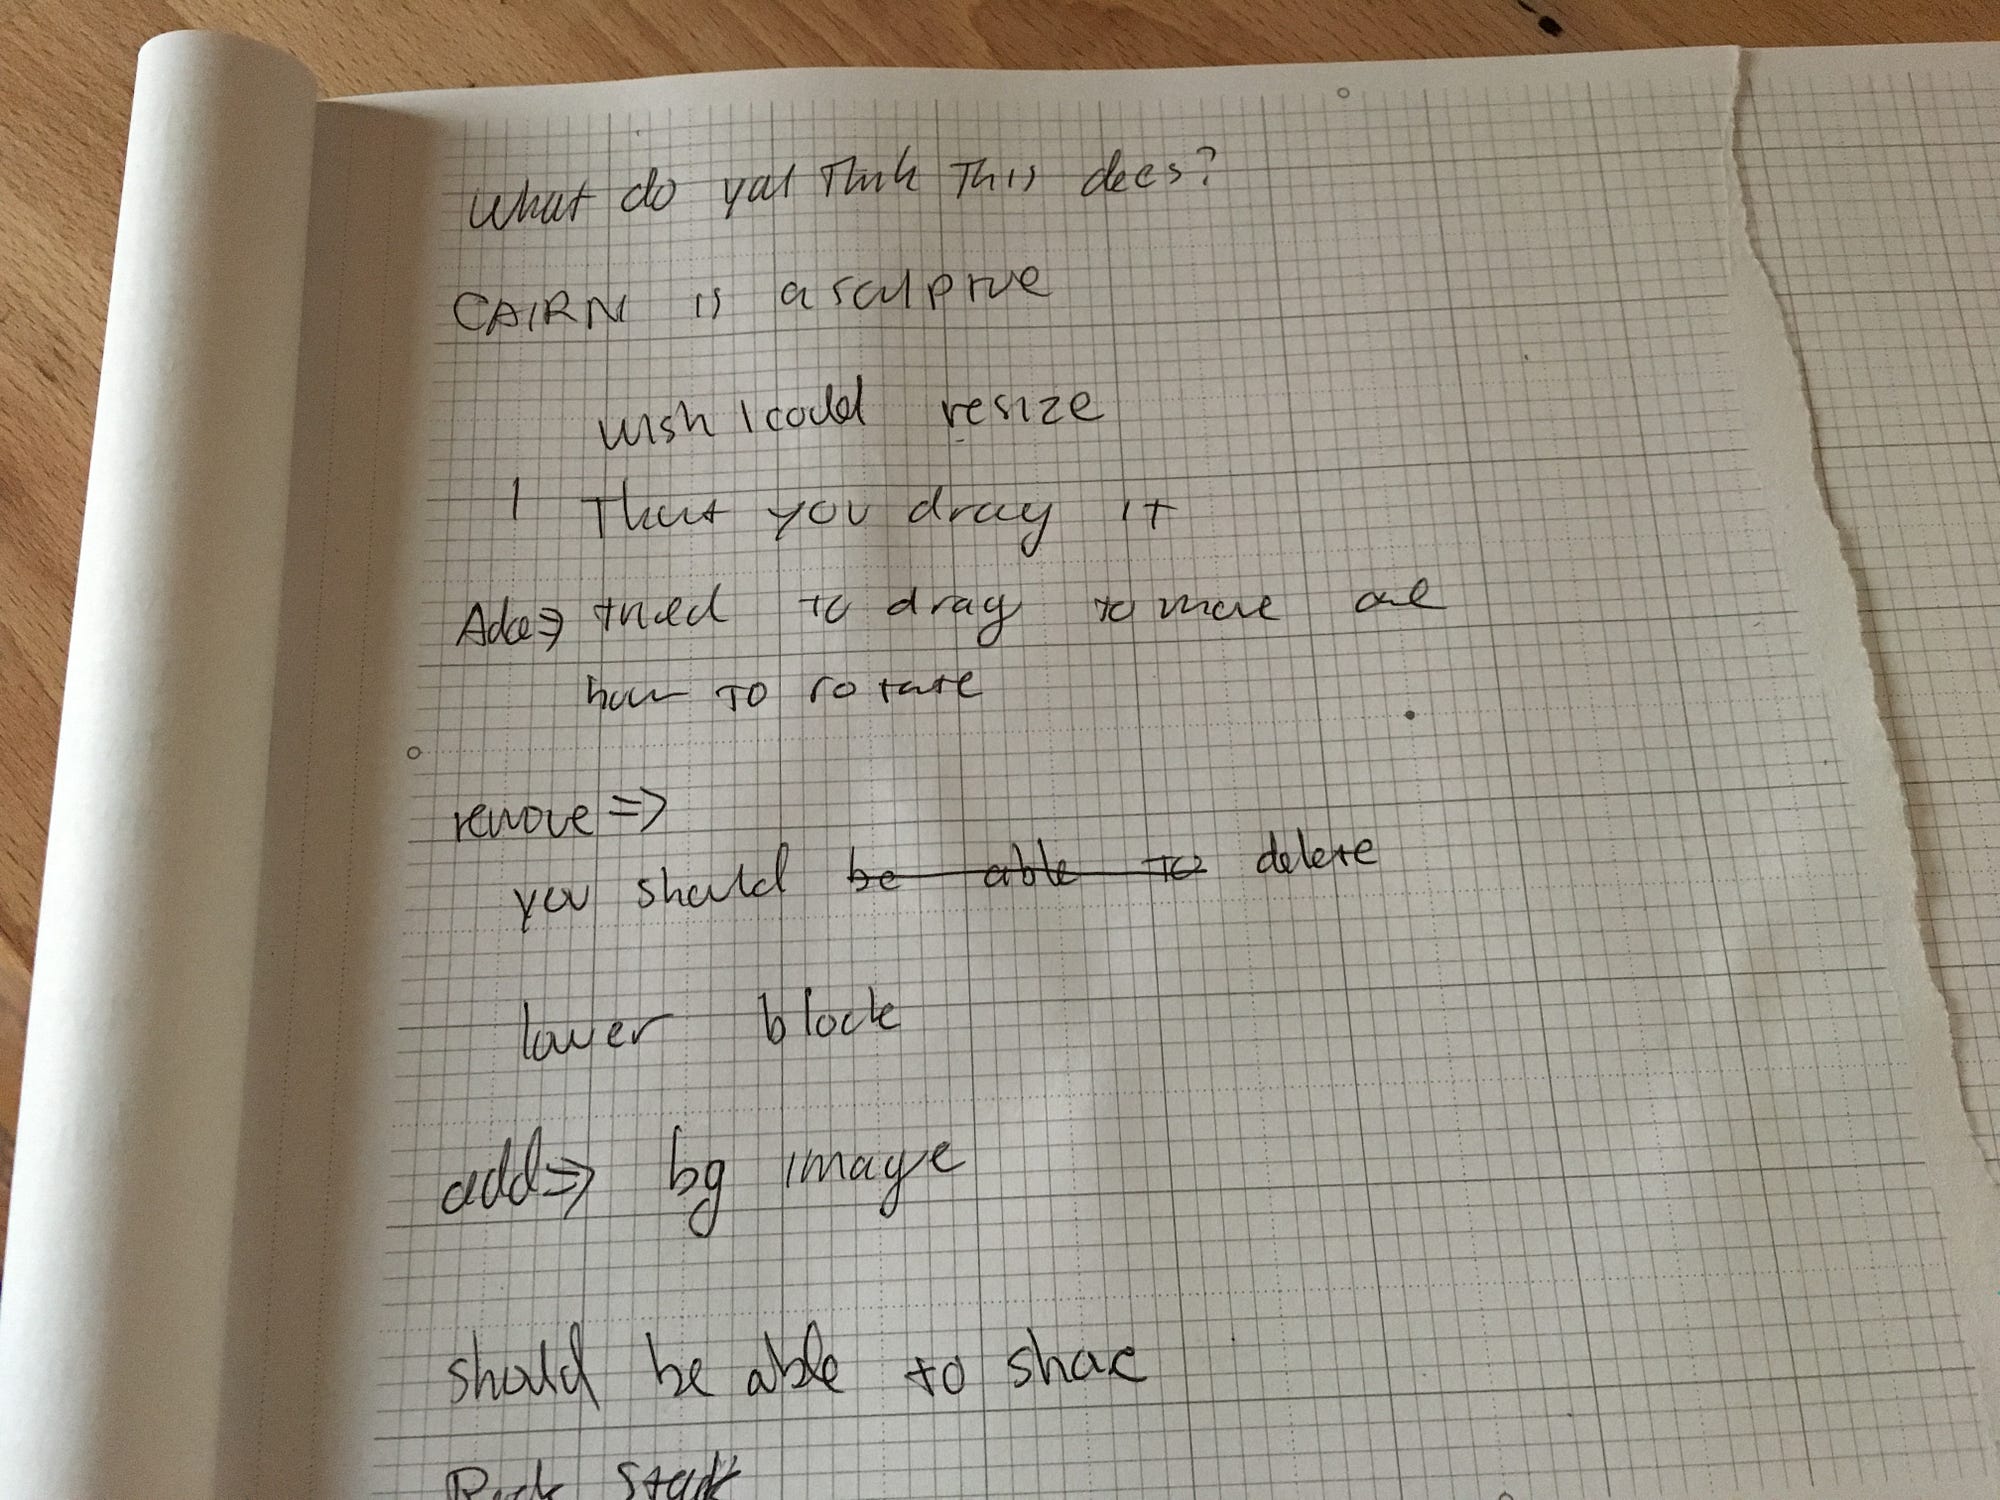 What do you think This does?
CAIRN is a sculptue
wish I could resize
I That you drag it
tried to drag to move one
how to rotate
remove =>
you should be able to delete
lower block
add => bg image
should be able to share
Rock Stack